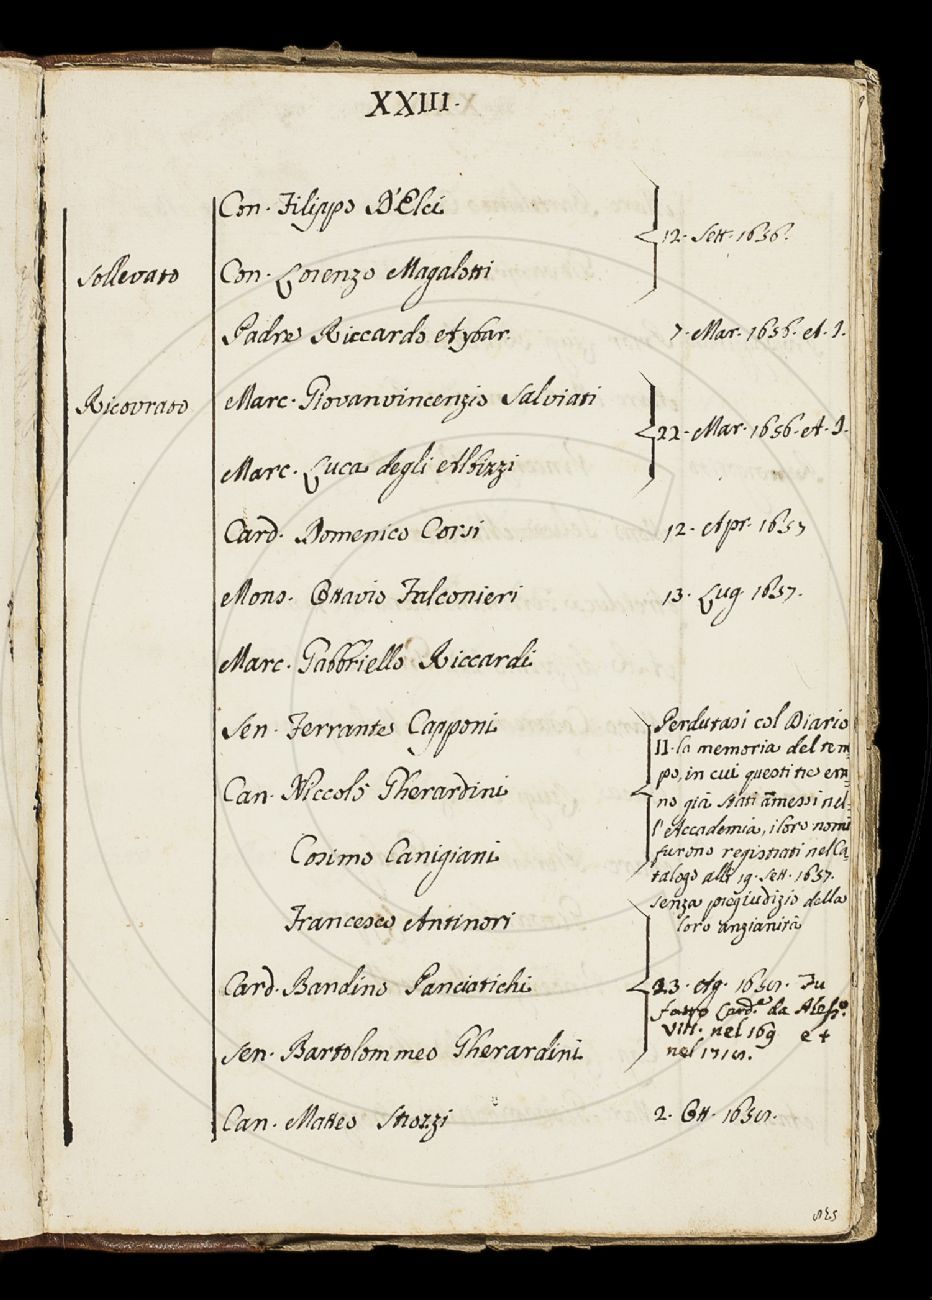 XXIII.
Con. Filippo D'Elci
12. Sett. 1656.
Sollevato Con. Lorenzo Magalotti
Padre Riccardo 7. Mar. 1656. et I.
Ricovrato Marc. Giovanvincenzio Salviati
22. Mar. 1656. et I.
Marc. Luca degli Albizzi
Card. Domenico Corsi 12. Apr. 1657
Mons. Ottavio Falconieri 13. Lug. 1657.
Marc. Gabbriello Riccardi
Sen. Ferrante Capponi
Can. Niccolò Gherardini
Cosimo Canigiani
Perdutasi col Diario
II. la memoria del tem-
po, in cui questi tre era-
no già stati amessi nel-
l'Accademia, i loro nomi
furono registrati nel Ca-
talogo alli 19. Sett. 1657.
senza pregiudizio della
loro anzianità
Francesco Antinori
Card. Bandino Panciatichi
Sen. Bartolommeo Gherardini
23. Ag. 165 Fu
fatto Card.e da Aless.o
VIII. nel 169 e +
nel 171
Can. Matteo Strozzi 2. Ott. 165